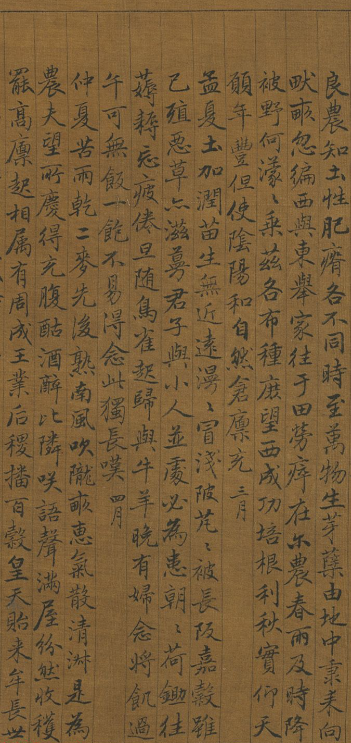 良農知土性肥瘠各不同時至萬物生芽蘖由地中秉耒向
畎畝忽徧西與東舉家往于田勞瘁在尔農春雨及時降
被野何濛〻乗茲各布種庻望西成功培根利秋實仰天
願年豐但使陰陽和自然倉廪充 三月
孟夏土加潤苗生無近遠漫〻冒淺陂芃〻被長阪嘉穀雖
已殖惡草亦滋蔓君子與小人並處必為患朝〻荷鋤往
薅耨忘疲倦旦随鳥雀起歸與牛羊晚有婦念將飢過
午可無飯一飽不易得念此獨長嘆 四月
仲夏苦雨乾二麥先後熟南風吹隴畝惠氣散清淑是為
農夫望所慶得充腹酤酒醉比隣咲語聲滿屋紛然收穫
罷高廪起相属有周成王業后稷播百穀皇天貽来牟長世